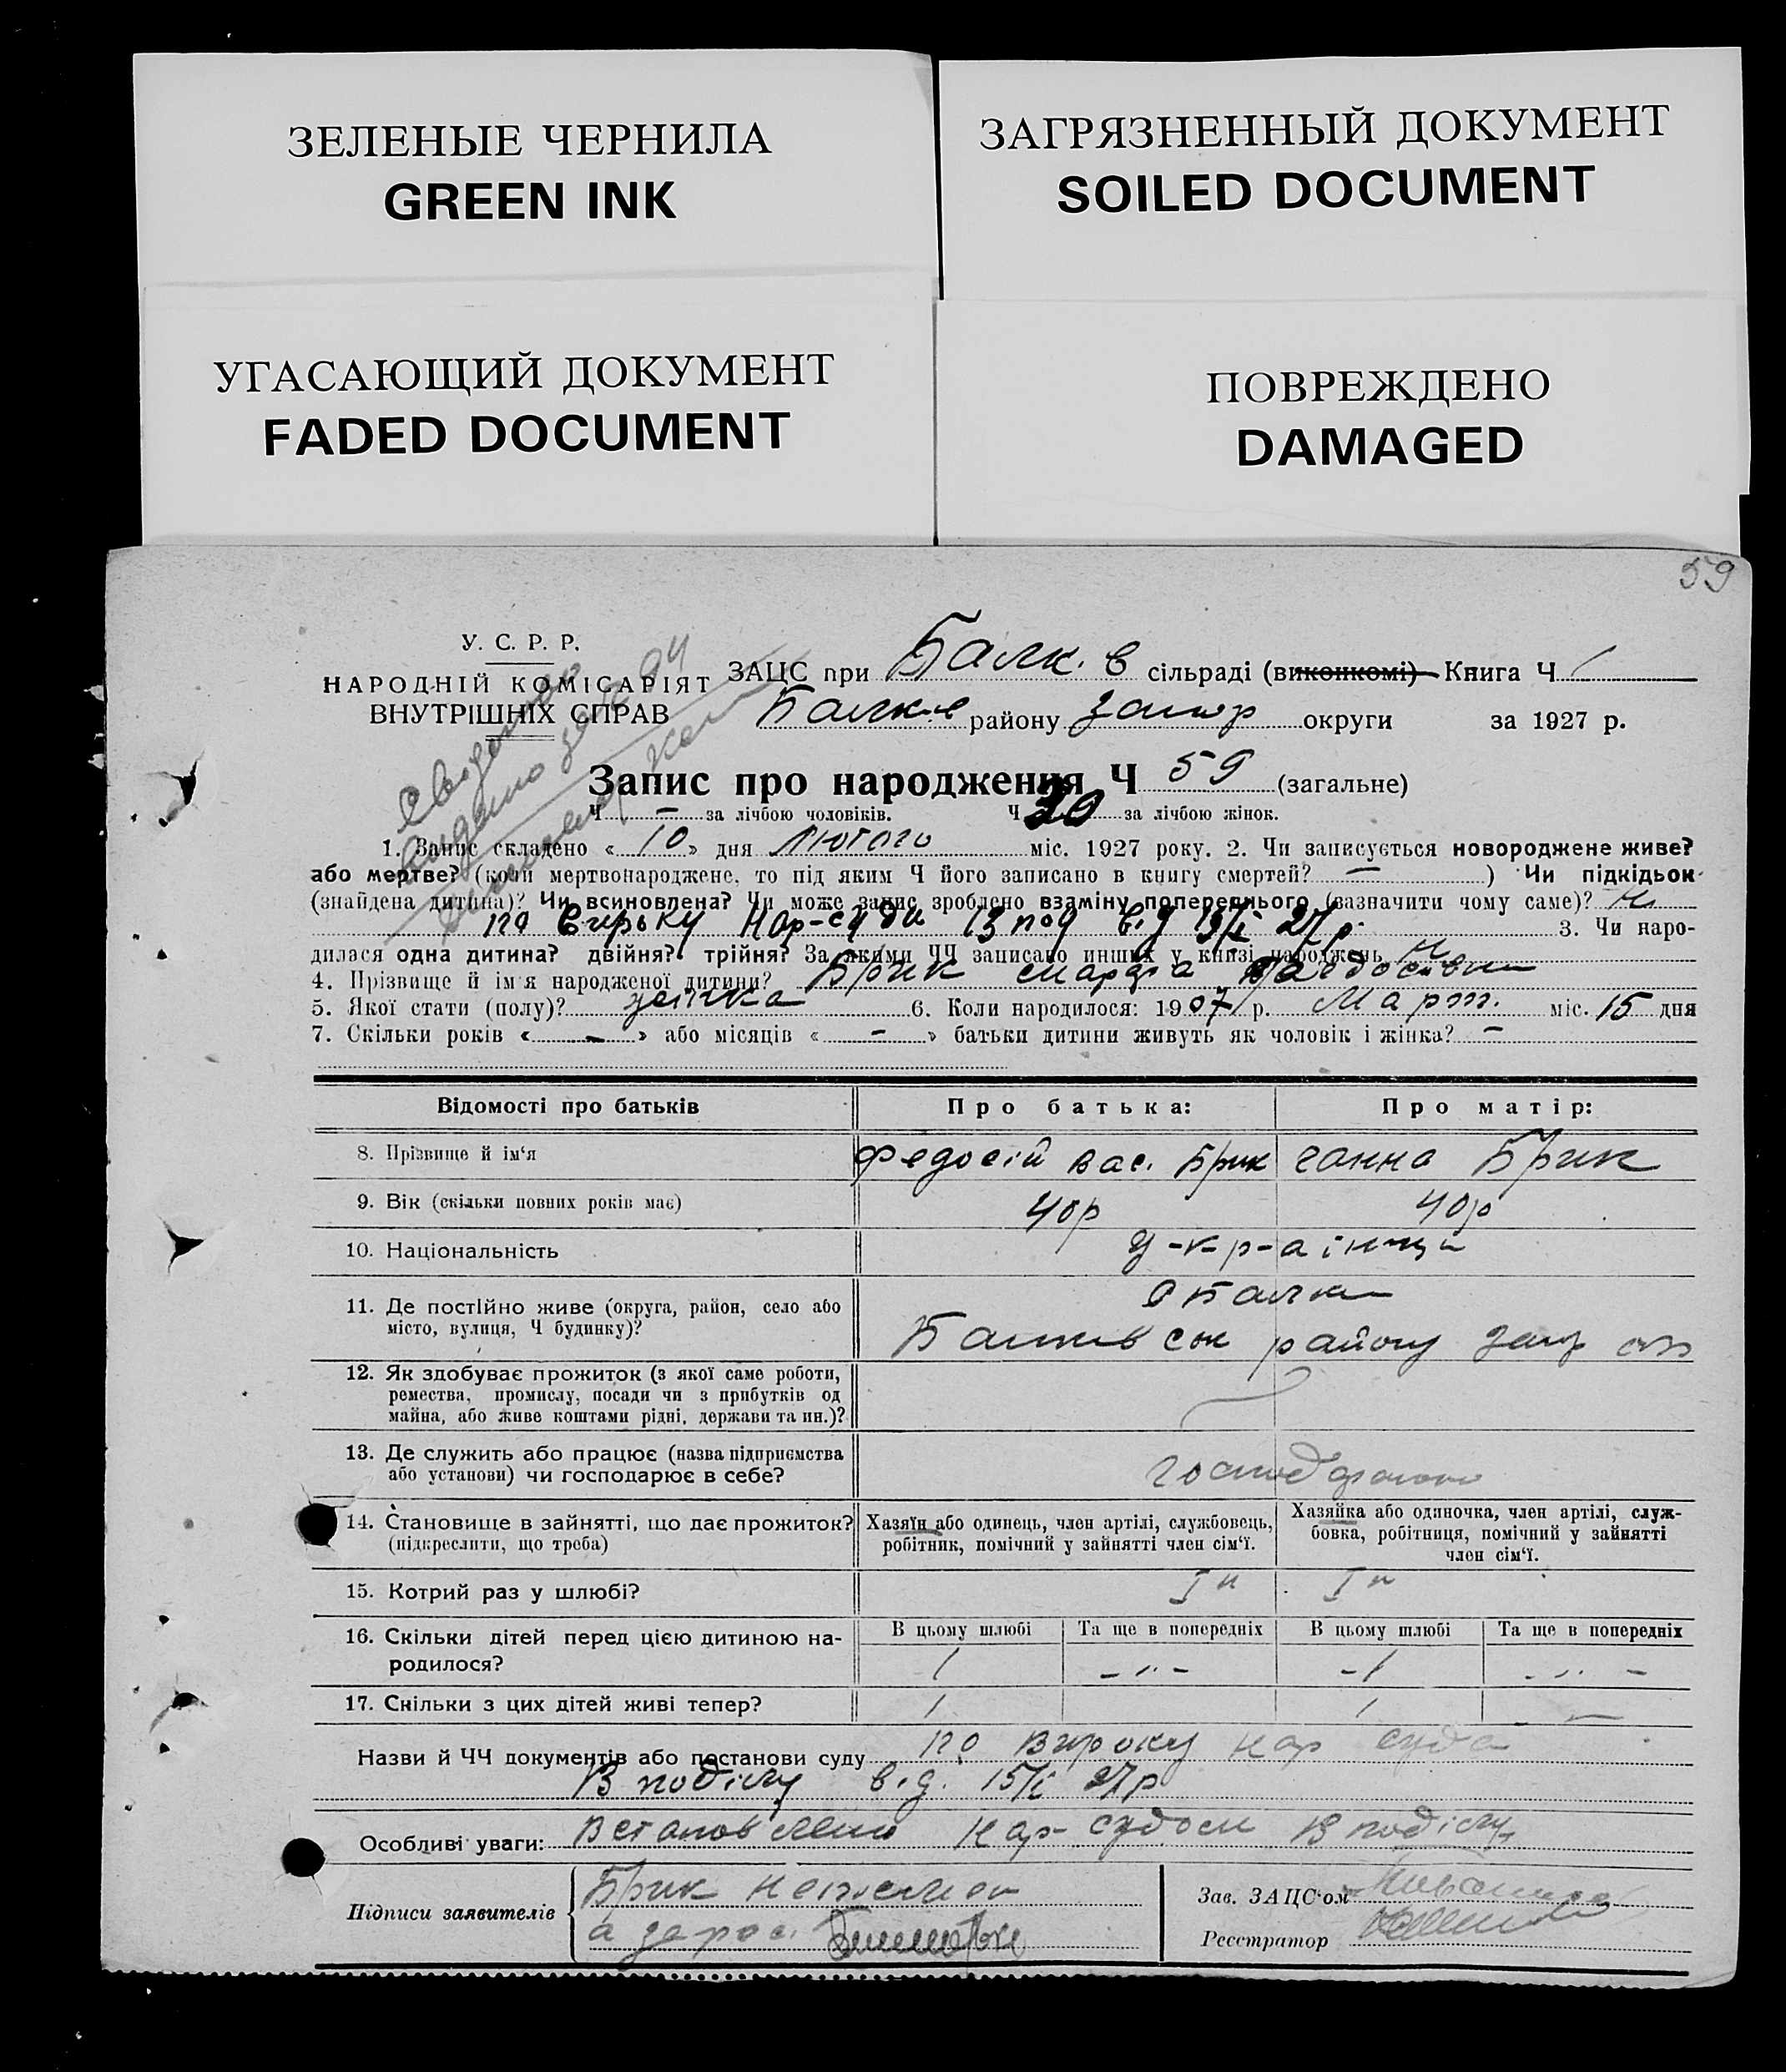 ЗЕЛЕНЫЕ ЧЕРНИЛА
GREEN INK
ЗАГРЯЗНЕННЫЙ ДОКУМЕНТ
SOILED DOCUMENT
УГАСАЮЩИЙ ДОКУМЕНТ
FADED DOCUMENT
ПОВРЕЖДЕНО
DAMAGED
59
У. С. Р. Р.
НАРОДНІЙ КОМІСАРІЯТ
ВНУТРІШНІХ СПРАВ
ЗАЦС при Балк. в сільраді (виконкомі) Книга Ч 1
району округи за 1927 р.
Запис про народження Ч 59 (загальне)
Ч — за лічбою чоловіків. Ч 30 за лічбою жінок.
1. Запис складено « 10 » дня Лютого міс. 1927 року. 2. Чи записується новороджене живе?
або мертве? (коли мертвонароджене, то під яким Ч його записано в книгу смертей? — ) Чи підкідьок
(знайдена дитина)? Чи всиновлена? Чи може запис зроблено взаміну попереднього (зазначити чому саме)?
по Вироку Нар-суда 13 под від 27 р. 3. Чи наро-
дилася одна дитина? двійня? трійня? За якими ЧЧ записано инших у книзі народжень
4. Прізвище й ім'я народженої дитини? Брик
5. Якої стати (полу)? жінка 6. Коли народилося: 1907 р. Март. міс. 15 дня
7. Скільки років « — » або місяців « — » батьки дитини живуть як чоловік і жінка? —
Відомості про батьків Про батька: Про матір:
8. Прізвище й ім'я Федосій Вас. Брик Ганна Брик
9. Вік (скільки повних років має) 40р 40р
10. Національність У-к-р-аїнці
11. Де постійно живе (округа, район, село або
місто, вулиця, Ч будинку)? с Балки
району
12. Як здобуває прожиток (з якої саме роботи,
ремества, промислу, посади чи з прибутків од
майна, або живе коштами рідні, держави та ин.)?
13. Де служить або працює (назва підприємства
або установи) чи господарює в себе?
14. Становище в зайнятті, що дає прожиток?
(підкреслити, що треба)
Хазяїн або одинець, член артілі, службовець,
робітник, помічний у зайнятті член сім'ї.
Хазяйка або одиночка, член артілі, служ-
бовка, робітниця, помічний у зайнятті
член сім'ї.
15. Котрий раз у шлюбі? I й I й
16. Скільки дітей перед цією дитиною на-
родилося?
В цьому шлюбі Та ще в попередніх В цьому шлюбі Та ще в попередніх
1 - " - -1 - " -
17. Скільки з цих дітей живі тепер? 1 1 —
Назви й ЧЧ документів або постанови суду по Вироку Нар суда
від. 15/I 27р
Особливі уваги: Встановлено Нар-судом
Підписи заявителів Брик
Зав. ЗАЦС'ом
Реєстратор